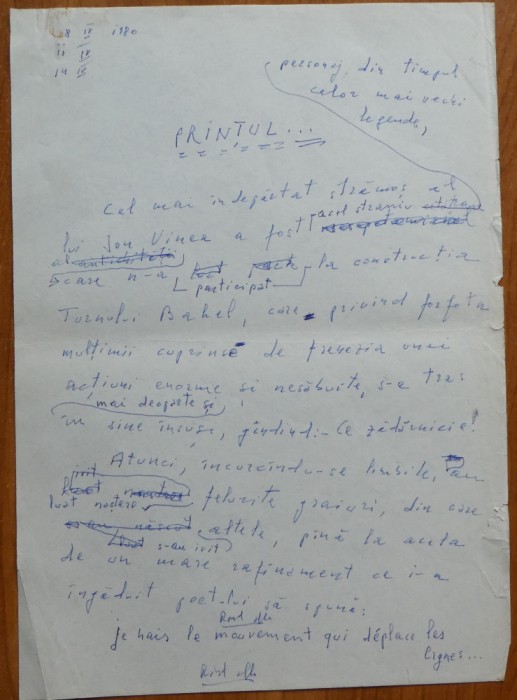 8 IV 1980
11 IV
14 IV
personaj, din timpul
celor mai vechi
legende,
PRINŢUL...
Cel mai îndepărtat strămoş al
lui Ion Vinea a fost acel straniu
care n-a participat la construcţia
Turnului Babel, care privind forfota
mulţimii cuprinse de frenezia unei
acţiuni enorme şi nesăbuite, s-a tras
mai deoparte şi
în sine însuşi, gîndind: - Ce zădărnicie!
Atunci, încurcîndu-se limbile, au
luat naştere felurite graiuri, din care
s-au ivit altele, pînă la acela
de un mare rafinament ce i-a
îngăduit poetului să spună:
je hais le mouvement qui déplace les
lignes...